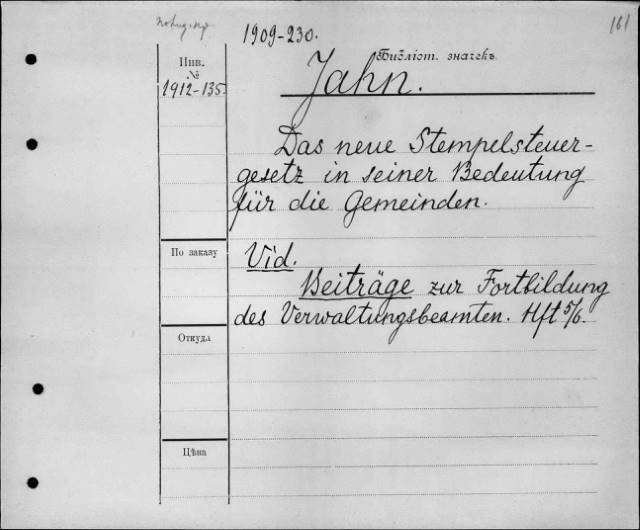 1909-230.
161
Инв.
№
1912-135.
Библіот. значекъ
Jahn.
Das neue Stempelsteuer-
gesetz in seiner Bedeutung
für die Gemeinden.
По заказу
Vid.
Beiträge zur Fortbildung
des Verwaltungsbeamten. Hft 5/6.
Откуда
Цѣна